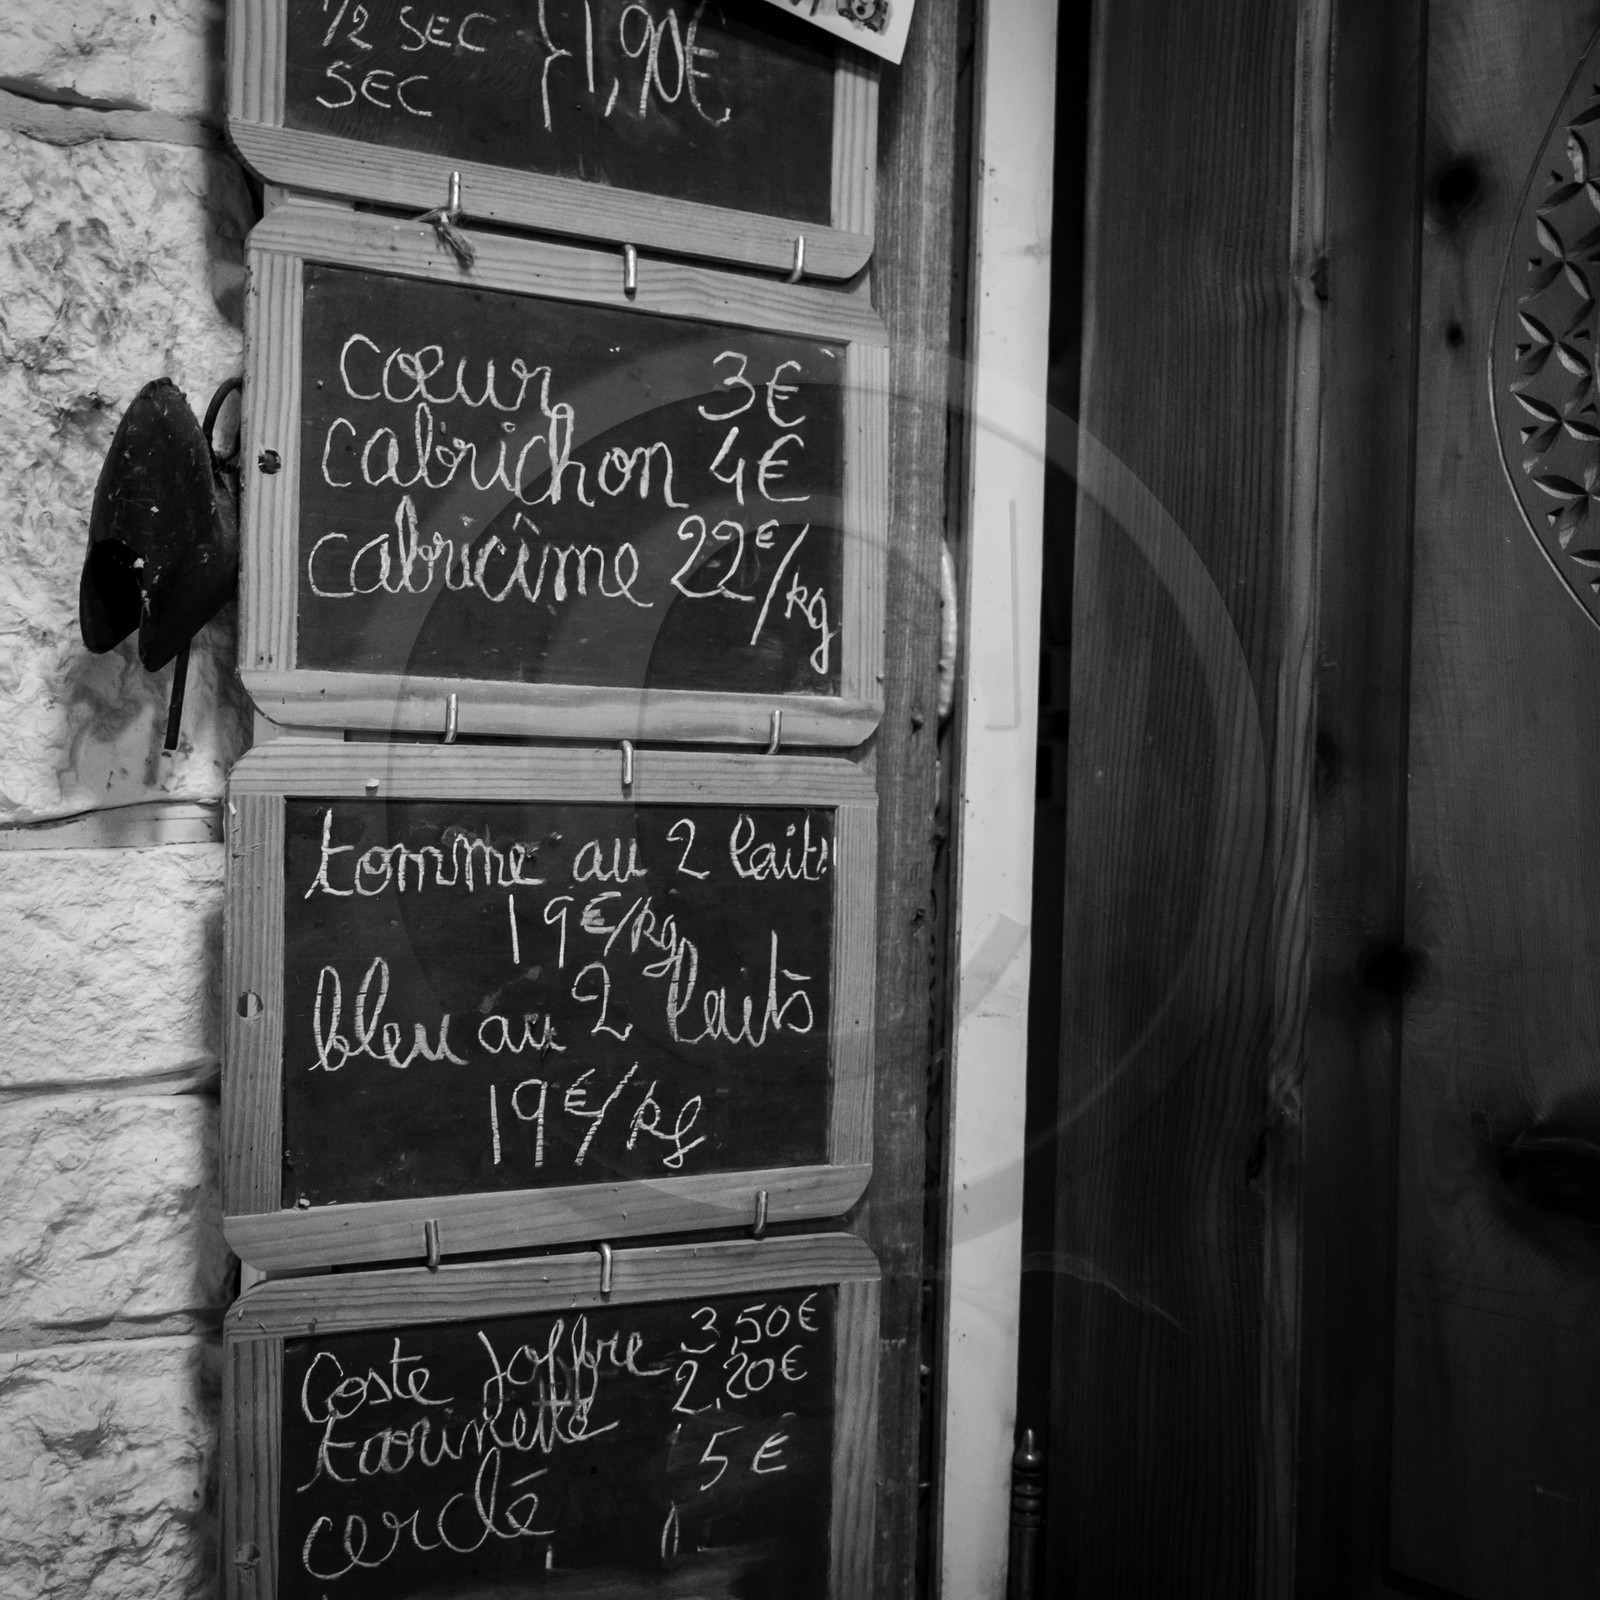 1/2 SEC } 1,90€
SEC
cœur 3€
cabrichon 4€
cabricîme 22€/kg
tomme au 2 laits
19€/kg
bleu au 2 laits
19€/kg
Coste Joffre 3,50€
taourinette 2,20€
cerclé 5€